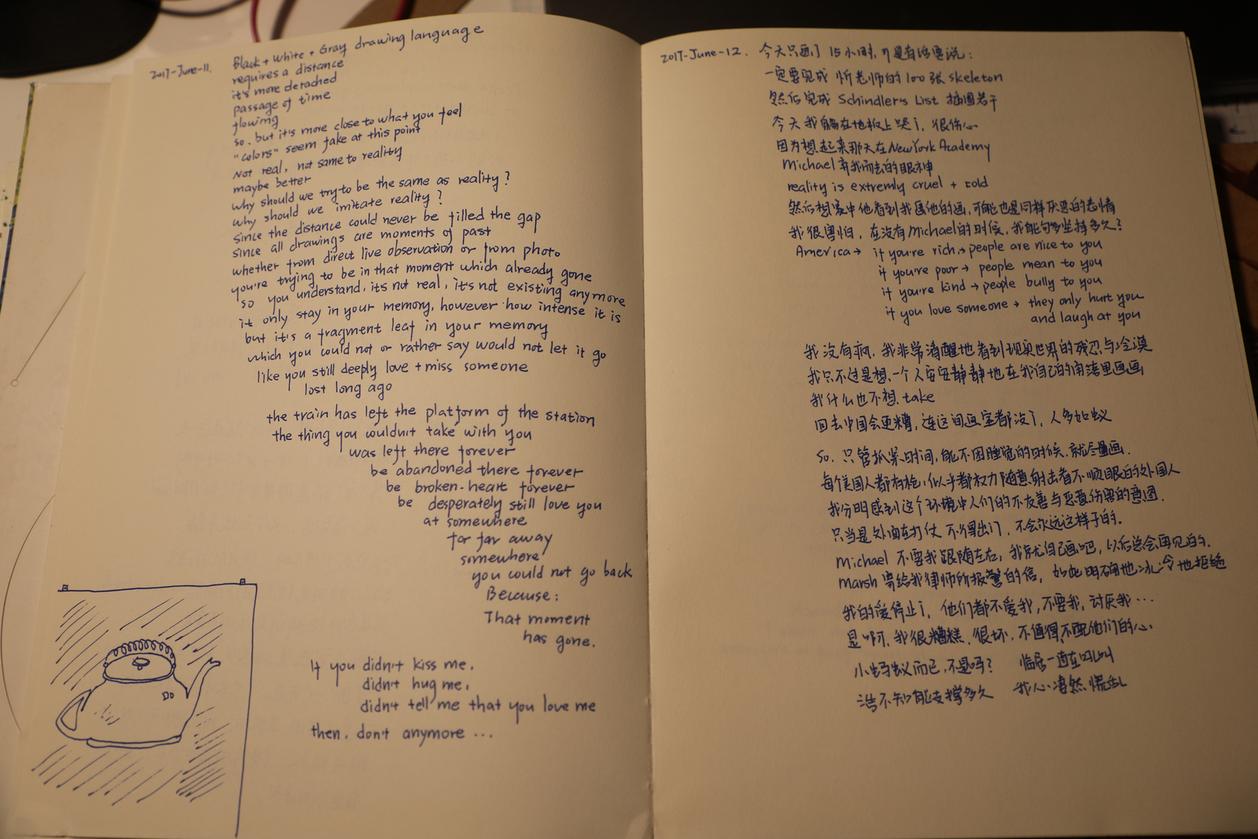 2017-June-11.
Black + White + Gray drawing language
requires a distance
it's more detached
passage of time
flowing
so. but it's more close to what you feel
"colors" seem fake at this point
Not real, not same to reality
maybe better
why should we try to be the same as reality?
why should we imitate reality?
since the distance could never be filled the gap
since all drawings are moments of past
whether from direct live observation or from photo
you're trying to be in that moment which already gone
so you understand, it's not real, it's not existing anymore
it only stay in your memory, however how intense it is
but it's a fragment leaf in your memory
which you could not or rather say would not let it go
like you still deeply love + miss someone
lost long ago
the train has left the platform of the station
the thing you wouldn't take with you
was left there forever
be abandoned there forever
be broken-heart forever
be desperately still love you
at somewhere
far far away
somewhere
you could not go back
Because:
That moment
has gone.
If you didn't kiss me.
didn't hug me.
didn't tell me that you love me
then. don't anymore ...
2017-June-12. 今天只画了15小时,可是有话要说:
一定要完成 忻老师的100张 skeleton
然后完成 Schindler's List 插图若干
今天我躺在地板上哭了,很伤心.
因为想起来那天在New York Academy
Michael 弃我而去的眼神
reality is extremely cruel + cold
然后想象中他看到我画他的画,可能也是同样厌恶的表情
我很害怕,在没有Michael的时候,我能够坚持多久?
America → if you're rich → people are nice to you
if you're poor → people mean to you
if you're kind → people bully to you
if you love someone → they only hurt you
and laugh at you
我没有疯,我非常清醒地看到现实世界的残忍与冷漠
我只不过是想一个人安安静静地在我自己的角落里画画
我什么也不想 take
回去中国会更糟,连这间画室都没了,人多如蚁
So. 只管抓紧时间,能不困睡觉的时候,就尽量画.
每个美国人都有枪,似乎都权力随意射击看不顺眼的外国人
我分明感到这个环境中人们的不友善与恶意伤害的意图.
只当是外面在打仗,不得出门,不会永远这样子的.
Michael 不要我跟随左右,我就自己画吧,以后总会再见的.
Marsh 寄给我律师所报警的信,如此明确地冰冷地拒绝
我的爱停止了,他们都不爱我,不要我,讨厌我...
是啊,我很糟糕,很坏,不值得不配他们的心.
小蚂蚁而已,不是吗? 临居一直在吼叫
浩不知能支撑多久 我心凄然慌乱